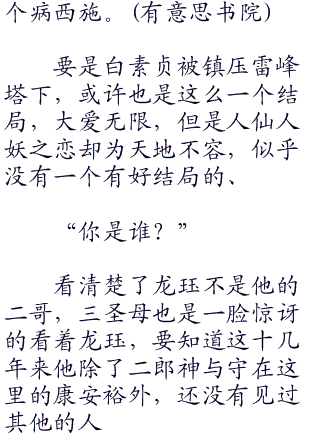 个病西施。(有意思书院)
要是白素贞被镇压雷峰
塔下，或许也是这么一个结
局，大爱无限，但是人仙人
妖之恋却为天地不容，似乎
没有一个有好结局的、
“你是谁？”
看清楚了龙珏不是他的
二哥，三圣母也是一脸惊讶
的看着龙珏，要知道这十几
年来他除了二郎神与守在这
里的康安裕外，还没有见过
其他的人